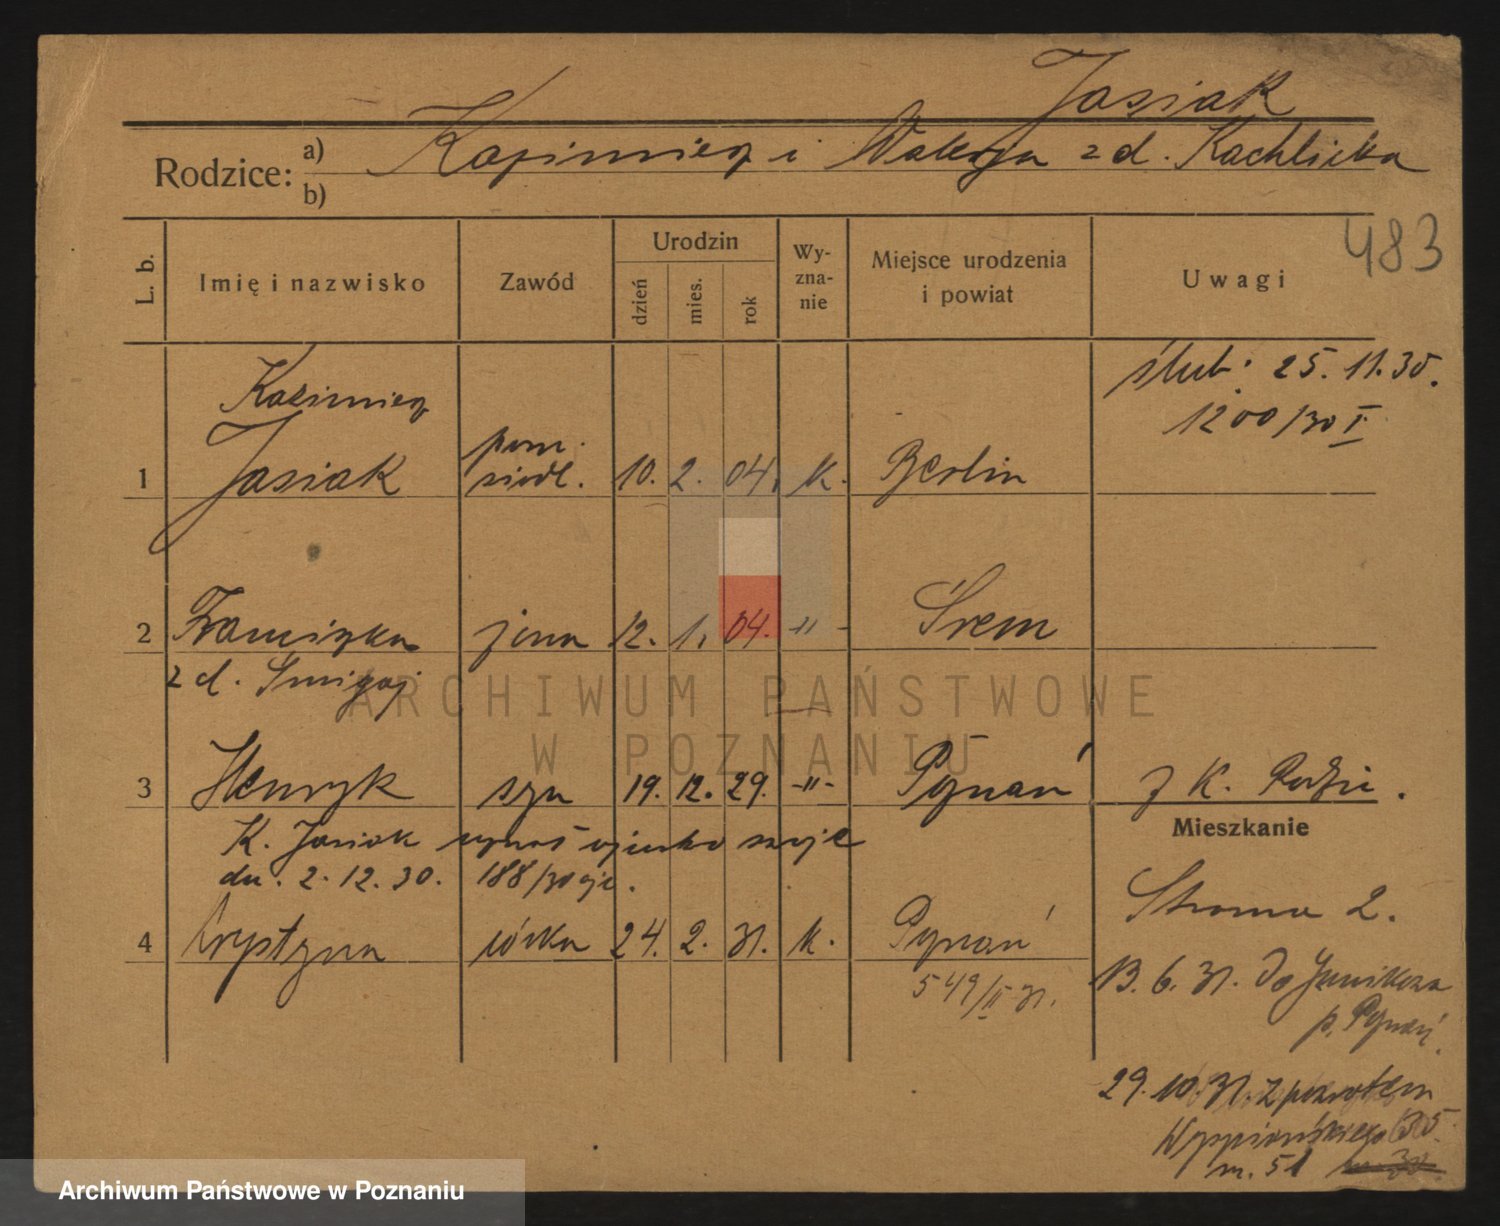 Jasiak
Rodzice: a) Kazimierz i Walerja z d. Kachlicka
b)
483
L. b. Imię i nazwisko Zawód Urodzin dzień mies. rok Wyznanie Miejsce urodzenia i powiat Uwagi
ślub: 25. 11. 30.
1200/30 I
Kazimierz
1 Jasiak pom. siodl. 10. 2. 04. k. Berlin
2 Franciszka żona 12. 1. 04. -"- Śrem
z d. Śmigaj
ARCHIWUM PAŃSTWOWE
W POZNANIU
3 Henryk syn 19. 12. 29. -"- Poznań z K. Rodzic.
K. Jasiak uznał ojcostwo swoje
dn. 2. 12. 30. 188/30
Mieszkanie
Stroma 2.
4 Krystyna córka 24. 2. 31. k. Poznań
549/II 31.
13. 6. 31. do Junikowa
p. Poznań.
29. 10. 31. z powrotem
Wyspiańskiego 35.
m. 51
Archiwum Państwowe w Poznaniu